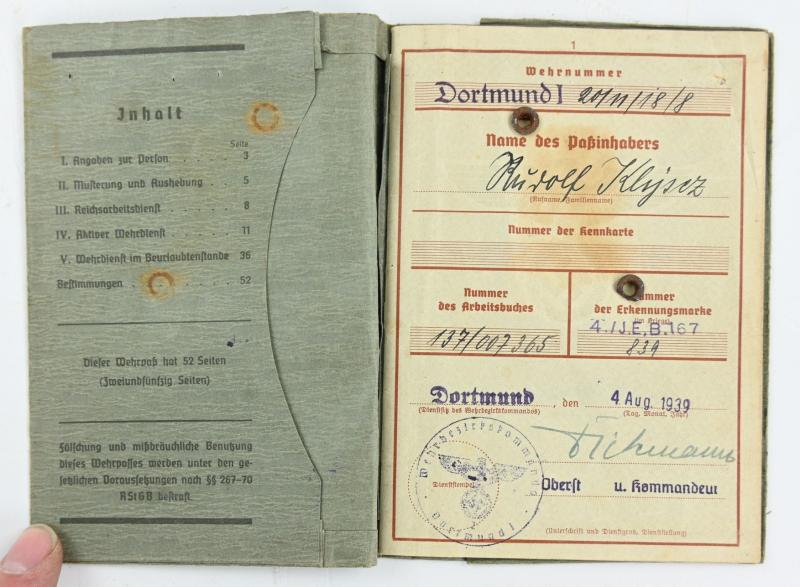 Inhalt
Seite
I. Angaben zur Person . . . . . . 3
II. Musterung und Aushebung . . . . 5
III. Reichsarbeitsdienst . . . . . . 8
IV. Aktiver Wehrdienst . . . . . . 11
V. Wehrdienst im Beurlaubtenstande 36
Bestimmungen . . . . . . . . 52
Dieser Wehrpaß hat 52 Seiten
(Zweiundfünfzig Seiten)
Fälschung und mißbräuchliche Benutzung
dieses Wehrpasses werden unter den ge-
setzlichen Voraussetzungen nach §§ 267-70
RStGB bestraft.
1
Wehrnummer
Dortmund I 20/11/18/8
Name des Paßinhabers
Rudolf
(Rufname, Familienname)
Nummer der Kennkarte
Nummer
des Arbeitsbuches
137/007365
Nummer
der Erkennungsmarke
(im Kriege)
4./J.E.B.167
839
Dortmund, den 4 Aug. 1939
(Dienstsitz des Wehrbezirkskommandos) (Tag, Monat, Jahr)
Wehrbezirkskommando Dortmund I
(Dienststempel)
Oberst u. Kommandeur
(Unterschrift und Dienstgrad, Dienststellung)